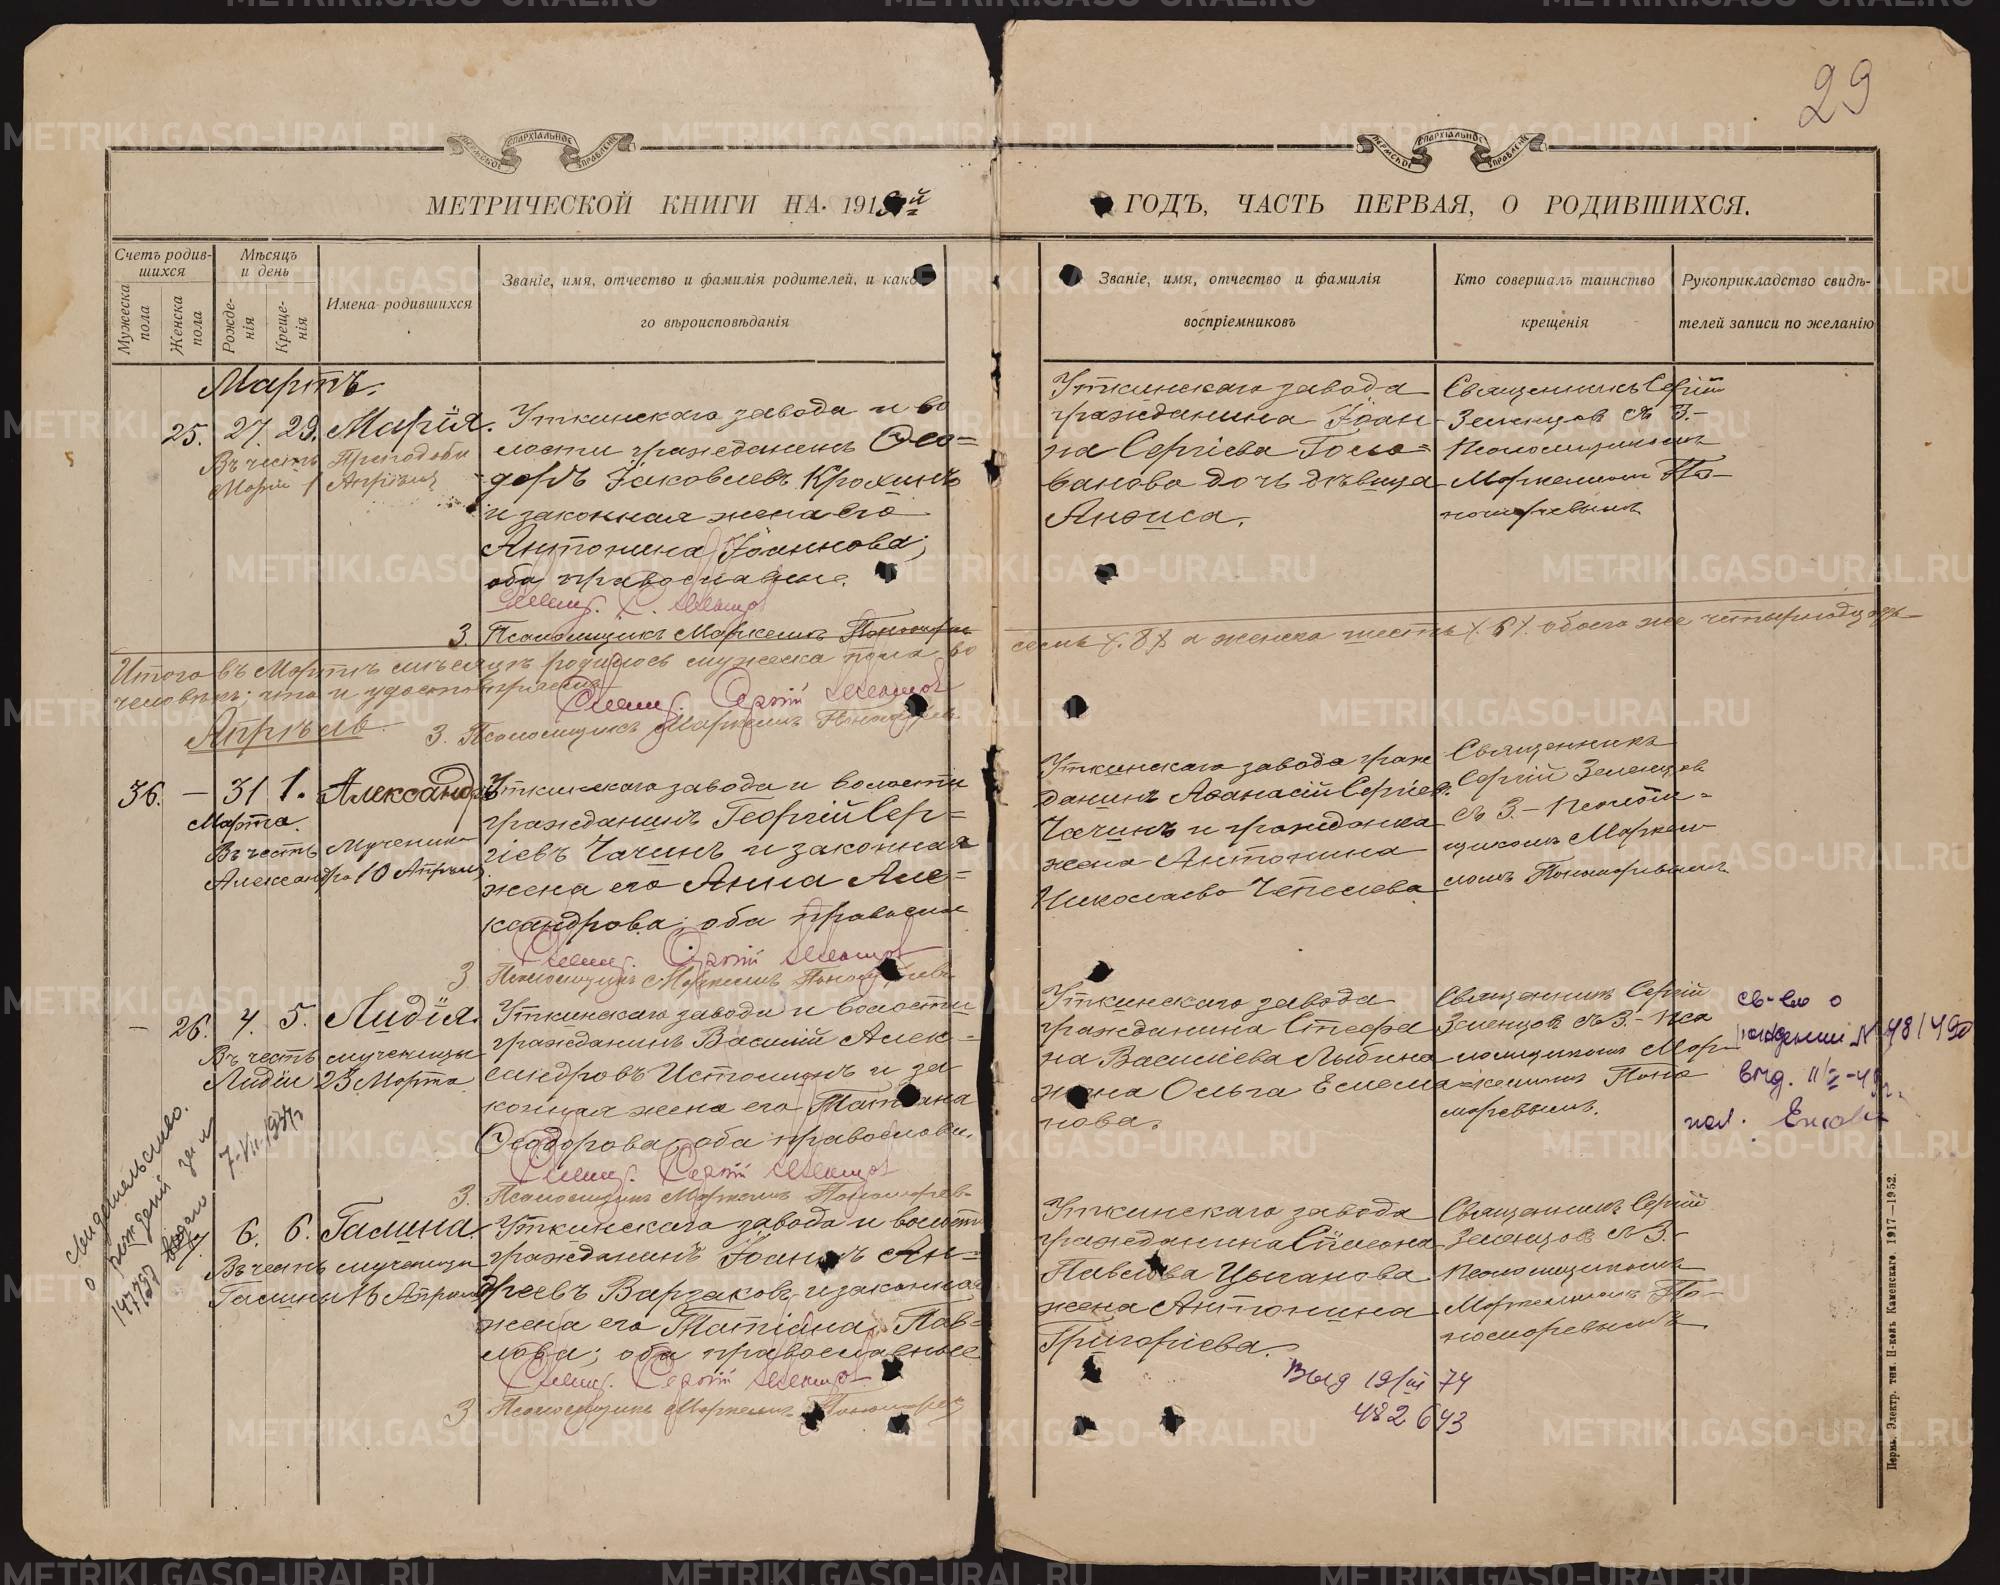 29
ПЕРМСКОЕ ЕПАРХІАЛЬНОЕ УПРАВЛЕНІЕ
ПЕРМСКОЕ ЕПАРХІАЛЬНОЕ УПРАВЛЕНІЕ
МЕТРИЧЕСКОЙ КНИГИ НА 191 й
ГОДЪ, ЧАСТЬ ПЕРВАЯ, О РОДИВШИХСЯ.
Счетъ родив-
шихся
Мужеска пола
Женска пола
Мѣсяцъ
и день
Рожде-
нія
Креще-
нія
Имена родившихся
Званіе, имя, отчество и фамилія родителей, и како-
го вѣроисповѣданія
Званіе, имя, отчество и фамилія
воспріемниковъ
Кто совершалъ таинство
крещенія
Рукоприкладство свидѣ-
телей записи по желанію
Мартъ.
25. 27. 29. Марія.
Въ честь Преподобн
Маріи 1 Апрѣля
Уткинскаго завода и во
лости гражданинъ Ѳео=
доръ Іаковлевъ Крохинъ
и законная жена его
Антонина Іоаннова;
оба православные.
Свящ. С. Зеленцов
З. Псаломщикъ Маркеллъ Пономарев
Уткинскаго завода
гражданина Іоан-
на Сергіева Голо=
ванова дочь дѣвица
Анфиса.
Священникъ Сергій
Зеленцовъ съ З.-
Псаломщикомъ
Маркелломъ По-
номаревымъ
Итого въ Мартѣ мѣсяцѣ родилось мужеска пола во
семь /. 8 /. а женска шесть /. 6 /. обоего же четырнадцать
человѣкъ; что и удостовѣряемъ
Свящ. Сергій Зеленцов
З. Псаломщикъ Маркеллъ Пономарев
Апрѣль.
36. — 31 1. Александръ
Марта.
Въ честь Мученика
Александра 10 Апрѣля
Уткинскаго завода и волости
гражданинъ Георгій Сер=
гіевъ Чачинъ и законная
жена его Анна Але=
ксандрова; оба православ
Свящ. Сергій Зеленцов
З Псаломщикъ Маркеллъ Пономарев
Уткинскаго завода граж
данинъ Аѳанасій Сергіев
Чачинъ и гражданка
жена Антонина
Николаева Чепелева.
Священникъ
Сергій Зеленцовъ
съ З.- Псалом=
щикомъ Маркел
ломъ Пономаревымъ
— 26. 4. 5. Лидія.
Въ честь мученицы
Лидіи 23 Марта
Уткинскаго завода и волости
гражданинъ Василій Алек-
сандровъ Истоминъ и за
конная жена его Татіана
Ѳеодорова; оба православн.
Свящ. Сергій Зеленцов
З. Псаломщикъ Маркеллъ Пономарев
Уткинскаго завода
гражданина Стефа
на Василіева Лыбина
жена Ольга
нова.
Священникъ Сергій
Зеленцовъ съ З.- Пса
ломщикомъ Мар-
келломъ Поно
маревымъ.
св-во о
рождении №
выд.
Свидетельство.
о рождении за №
147797 выдано
7-VII-1937г
6. 6. Галина.
Въ честь мученицы
Галины 16 Апрѣля
Уткинскаго завода и волости
гражданинъ Іоаннъ Ан=
дреевъ Варзаковъ и законная
жена его Татіана Пав=
лова; оба православные
Свящ. Сергій Зеленцов
З Псаломщикъ Маркеллъ Пономарев
Уткинскаго завода
гражданина Сімеона
Павлова Цыганова
жена Антонина
Григоріева.
Священникъ Сергій
Зеленцовъ съ З.-
Псаломщикомъ
Маркелломъ По-
номаревымъ.
Выд 19/III 74
482643
Пермь. Электр. тип. Н-ковъ Каменскаго. 1917—1952.
METRIKI.GASO-URAL.RU